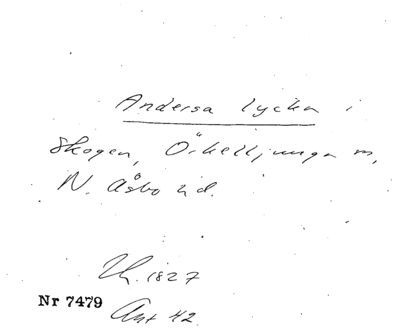 Andersa lycka i
Skogen, Örkelljunga sn,
N. Åsbo hd.
Uh. 1827
Nr 7479
Ant 42